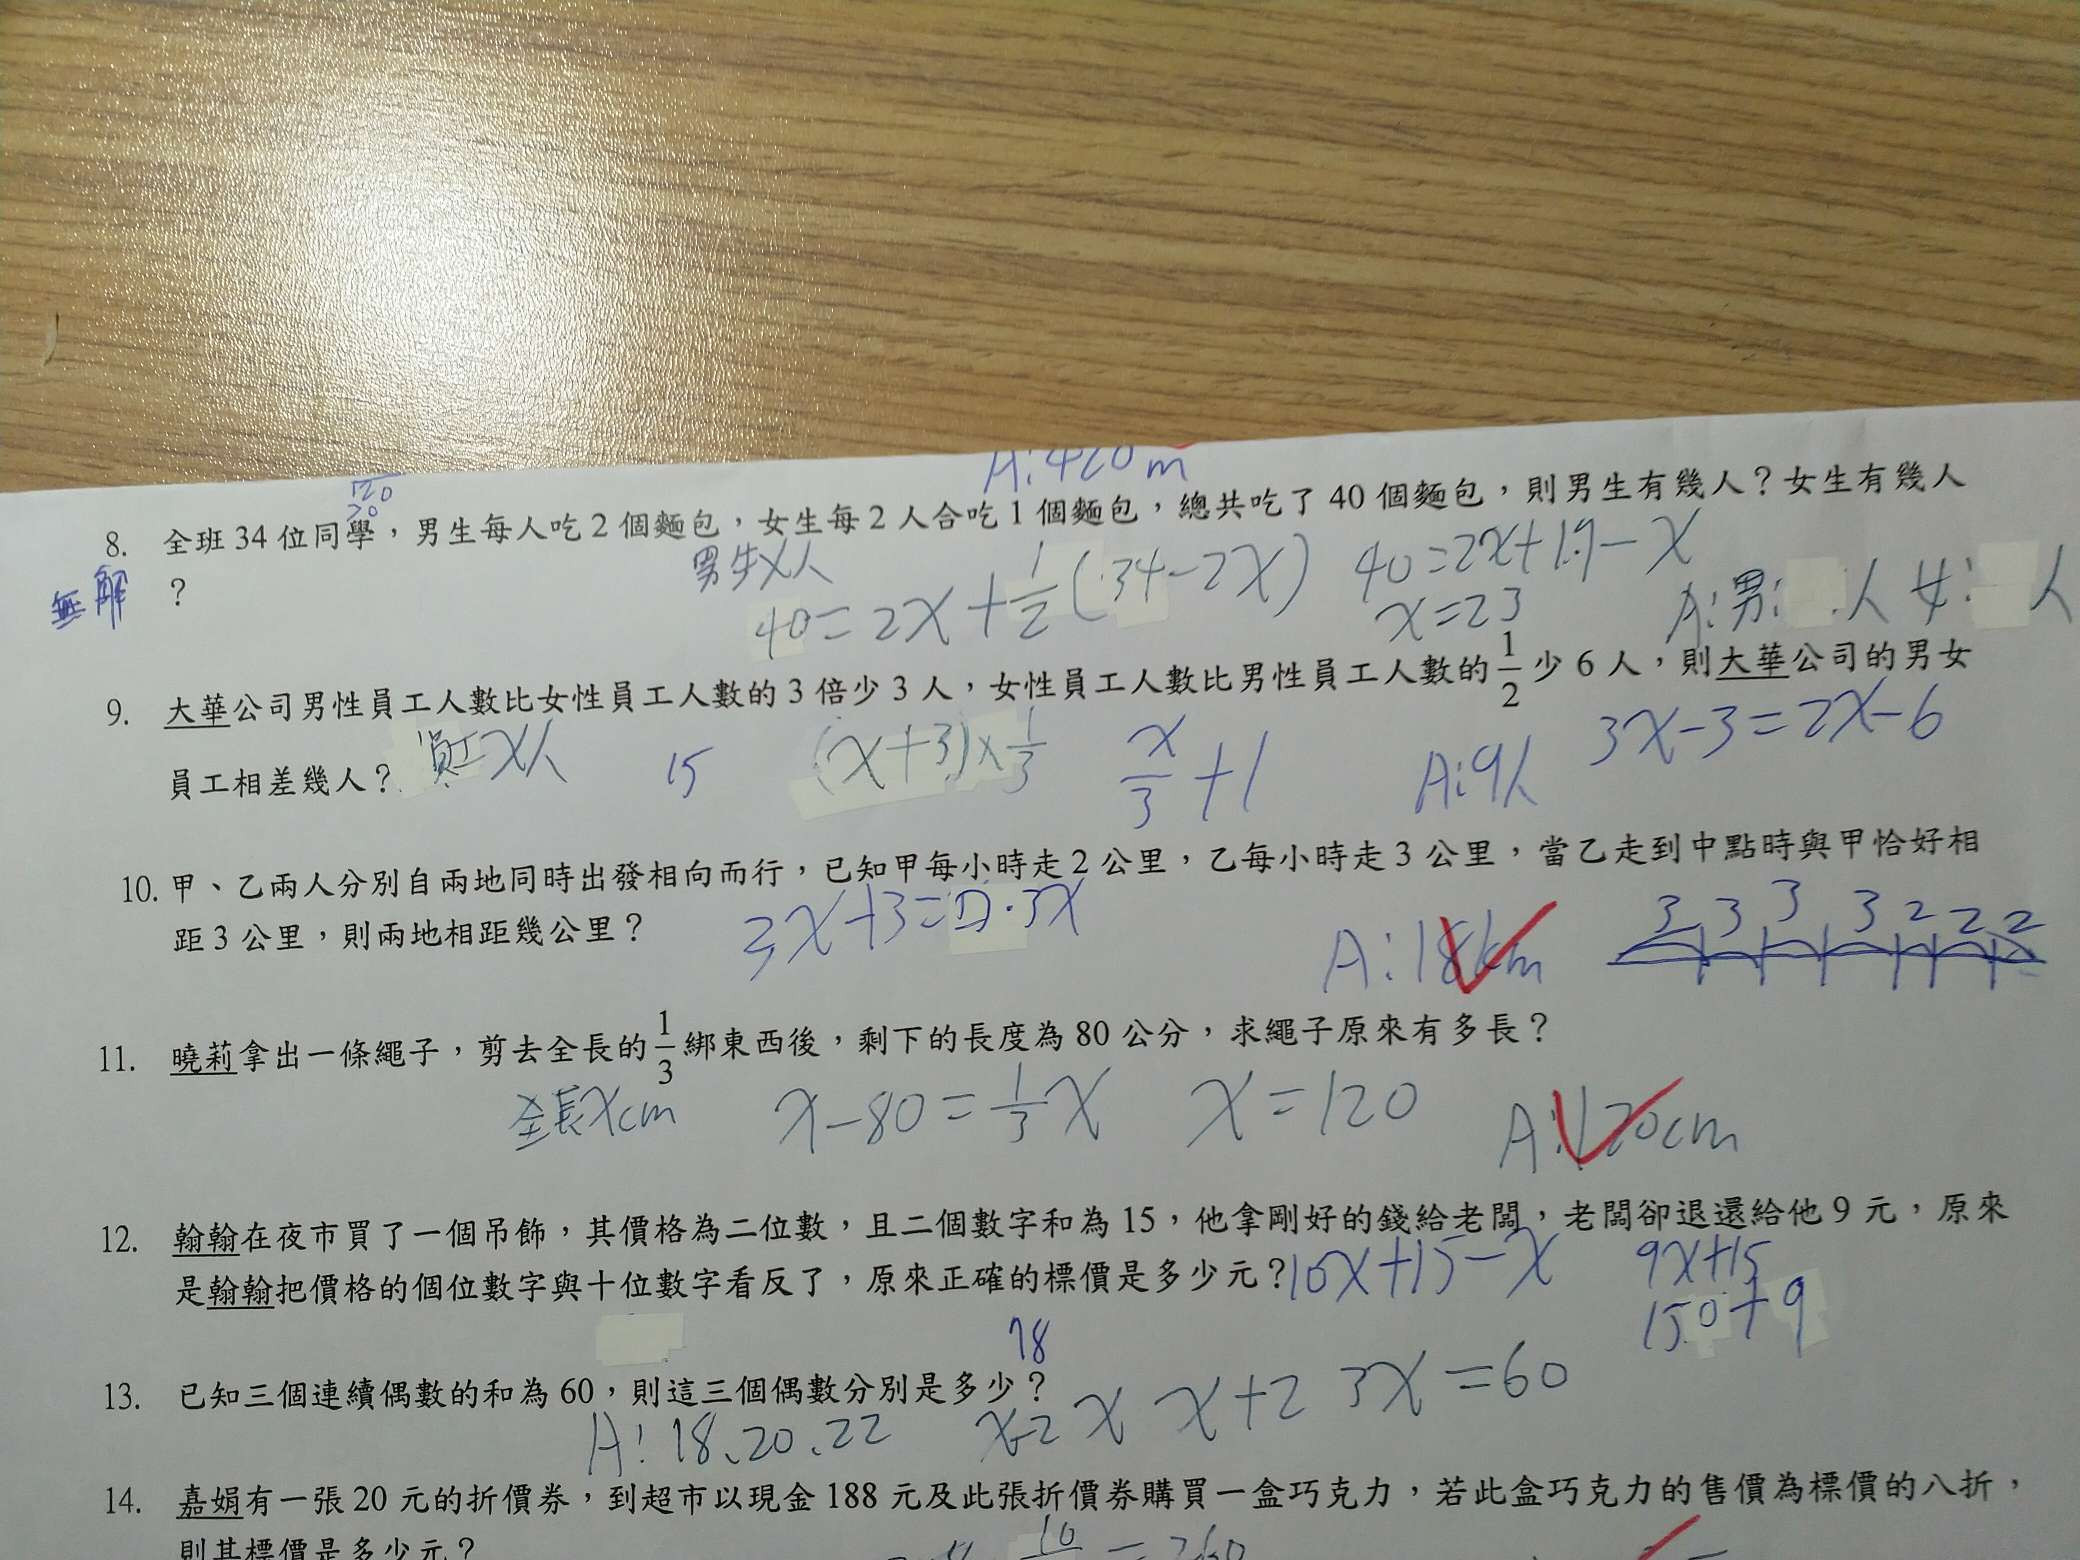 A:420m
120
20
8. 全班34位同學，男生每人吃2個麵包，女生每2人合吃1個麵包，總共吃了40個麵包，則男生有幾人？女生有幾人
？
無解
男生x人
40=2x+1/2(34-2x)
40=2x+17-x
x=23
A:男: 人 女: 人
9. 大華公司男性員工人數比女性員工人數的3倍少3人，女性員工人數比男性員工人數的1/2少6人，則大華公司的男女
員工相差幾人？
員工x人
15
(x+3)x1/3
x/3+1
A:9人
3x-3=2x-6
10. 甲、乙兩人分別自兩地同時出發相向而行，已知甲每小時走2公里，乙每小時走3公里，當乙走到中點時與甲恰好相
距3公里，則兩地相距幾公里？
A:18km
3 3 3 3 2 2 2
11. 曉莉拿出一條繩子，剪去全長的1/3綁東西後，剩下的長度為80公分，求繩子原來有多長？
全長xcm
x-80=1/3x
x=120
A:120cm
12. 翰翰在夜市買了一個吊飾，其價格為二位數，且二個數字和為15，他拿剛好的錢給老闆，老闆卻退還給他9元，原來
是翰翰把價格的個位數字與十位數字看反了，原來正確的標價是多少元？
10x+15-x
9x+15
78
13. 已知三個連續偶數的和為60，則這三個偶數分別是多少？
A:18、20、22
x-2 x x+2 3x=60
14. 嘉娟有一張20元的折價券，到超市以現金188元及此張折價券購買一盒巧克力，若此盒巧克力的售價為標價的八折，
則其標價是多少元？